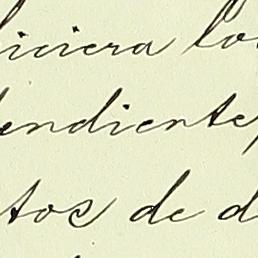 iciera lo
endiente,
tos de d